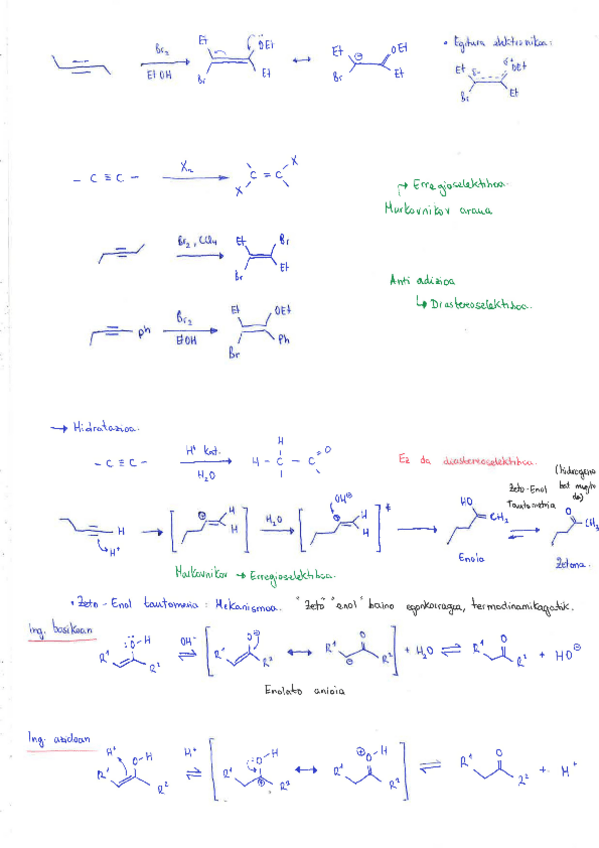 Br₂
EtOH
Et
OEt
Br
Et
↔
Et
OEt
Br
Et
• Egitura elektronikoa:
Et
δ-
δ+
OEt
Br
Et
- C ≡ C -
X₂
X
C = C
X
→ Erregioselektiboa.
Markovnikov araua
Br₂, CCl₄
Et
Br
Br
Et
Anti adizioa
↳ Diastereoselektiboa.
Ph
Br₂
EtOH
Et
OEt
Br
Ph
→ Hidratazioa.
- C ≡ C -
H⁺ kat.
H₂O
H
H - C - C
O
Ez da diastereoselektiboa.
Keto-Enol
Tautomeria
H
H⁺
⊕
H
H
H₂O
H
H
HO
CH₂
Enola
O
CH₃
Zetona.
Markovnikov → Erregioselektiboa.
• Zeto - Enol tautomeria: Mekanismoa. "Zeto" "enol" baino egonkorragoa, termodinamikagatik.
Ing. basikoan
O-H
R¹
R²
OH⁻
⇌
O⊖
R¹
R²
↔
O
R¹
⊖
R²
+ H₂O
⇌
O
R¹
R²
+ HO⊖
Enolato anioia
Ing. azidoan
H⁺
O-H
R¹
R²
H⁺
⇌
O-H
R¹
⊕
R²
↔
⊕
O-H
R¹
R²
⇌
O
R¹
R²
+ H⁺